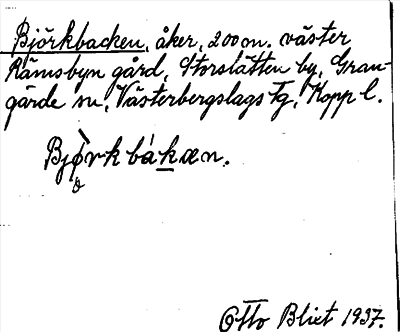 Björkbacken, åker, 200 m. väster
Rämsbyn gård, Storslätten by, Gran-
gärde sn, Västerbergslags Fg, Kopp l.
Bjǫ̀rk bákæn.
Otto Blixt 1937.